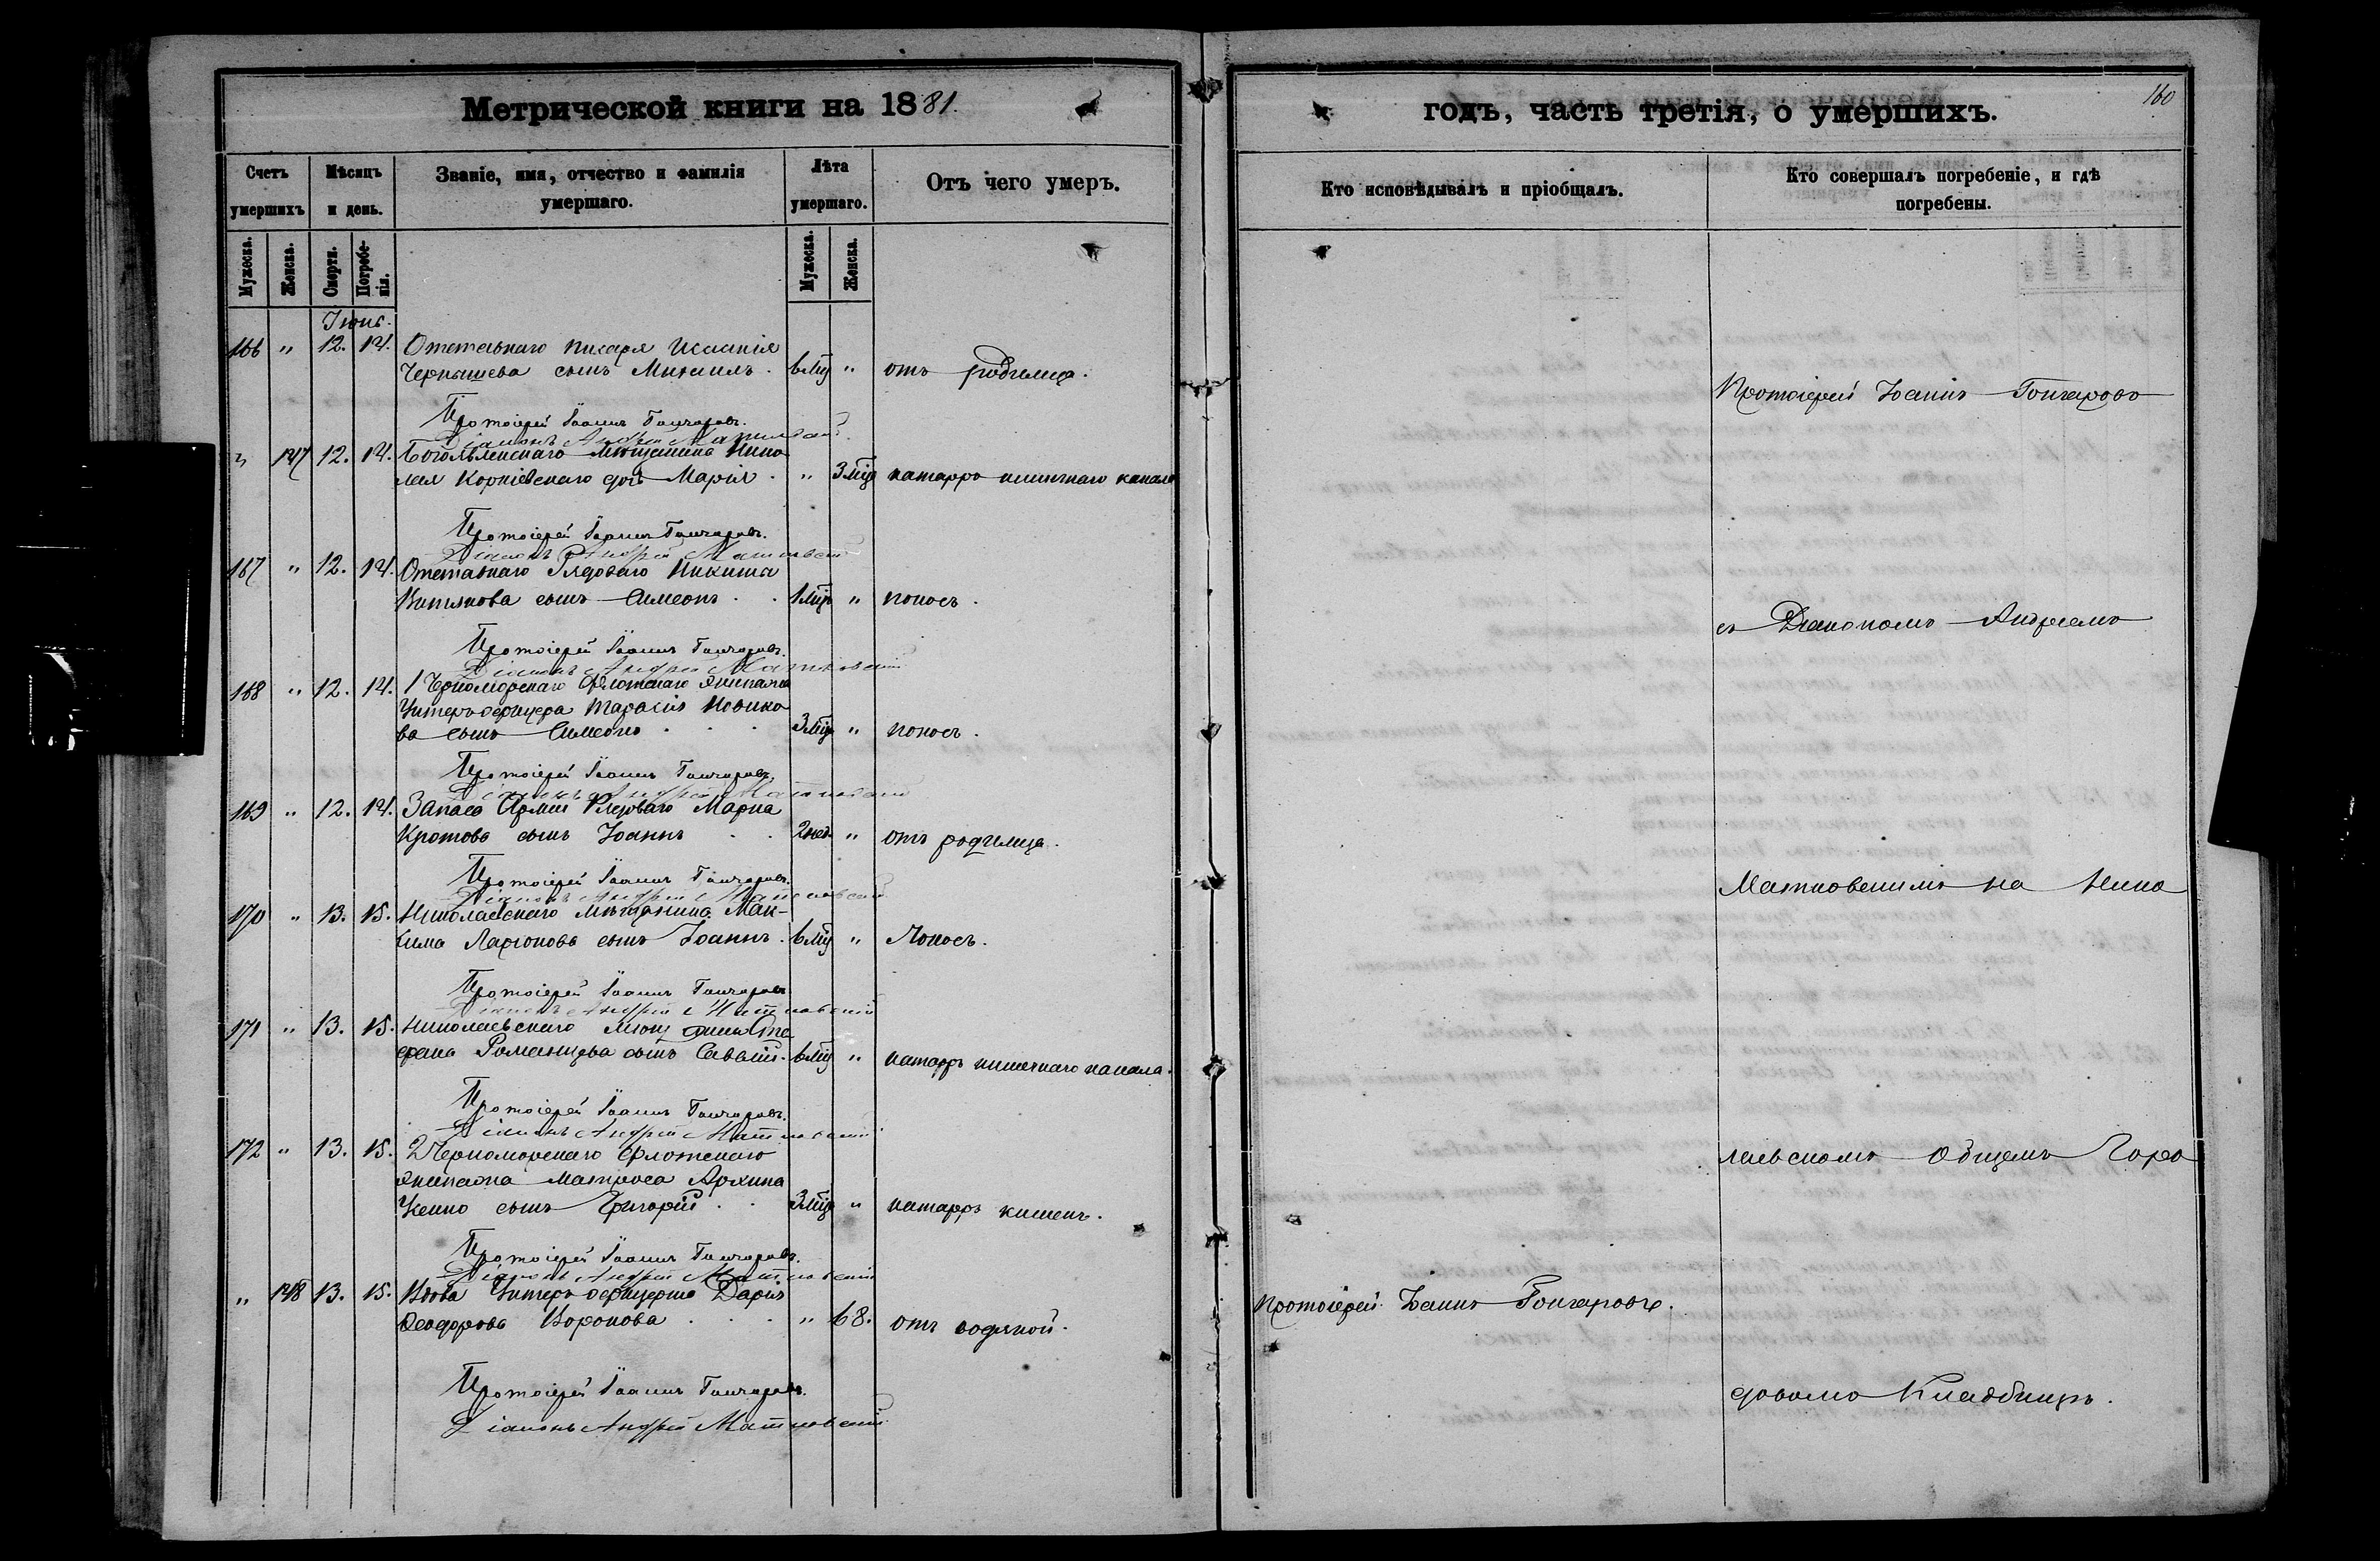 Метрической книги на 1881.
Счетъ умершихъ
Мѣсяцъ и день.
Званіе, имя, отчество и фамилія умершаго.
Лѣта умершаго.
Отъ чего умеръ.
Мужеска.
Женска.
Смерти.
Погребенія.
Мужеска.
Женска.
Іюнь.
166 " 12. 14. Отставнаго писаря
Чернышева сынъ Михаилъ. 6 мц " отъ родимца.
Протоіерей Іоаннъ Гончаровъ.
Діаконъ Андрей Матковскій.
" 147 12. 14. Богоявленскаго мѣщанина Нико
лая Корніевскаго дочь Марія. " 3 мца катарръ кишечнаго канала
Протоіерей Іоаннъ Гончаровъ.
Діаконъ Андрей Матковскій
167 " 12. 14. Отставнаго Рядоваго Никиты
сынъ Симеонъ. 1 мца " поносъ.
Протоіерей Іоаннъ Гончаровъ.
Діаконъ Андрей Матковскій
168 " 12. 14. 1 Черноморскаго Флотскаго Экипажа
Унтеръ-офицера Тарасія Новико
ва сынъ Симеонъ 3 мца " поносъ.
Протоіерей Іоаннъ Гончаровъ.
Діаконъ Андрей Матковскій
169 " 12. 14. Запаса Арміи Рядоваго Марка
Кротова сынъ Іоаннъ 2 нед. " отъ родимца.
Протоіерей Іоаннъ Гончаровъ.
Діаконъ Андрей Матковскій
170 " 13. 15. Николаевскаго мѣщанина Мак-
сима Ларіонова сынъ Іоаннъ. 6 мц " Поносъ.
Протоіерей Іоаннъ Гончаровъ
Діаконъ Андрей Матковскій
171 " 13. 15. Николаевскаго мѣщанина Сте
фана Романцева сынъ Савелій. 6 мц " катарръ кишечнаго канала.
Протоіерей Іоаннъ Гончаровъ.
Діаконъ Андрей Матковскій
172 " 13. 15. 2 Черноморскаго Флотскаго
экипажа матроса Архипа
сынъ Григорій 3 мца " катарръ кишекъ.
Протоіерей Іоаннъ Гончаровъ.
Діаконъ Андрей Матковскій
" 148 13. 15. Вдова Унтеръ офицерша Дарія
Феодорова Воронова " 68. отъ водяной.
Протоіерей Іоаннъ Гончаровъ.
Діаконъ Андрей Матковскій
годъ, часть третія, о умершихъ.
160
Кто исповѣдывалъ и пріобщалъ.
Кто совершалъ погребеніе, и гдѣ погребены.
Протоіерей Іоаннъ Гончаровъ
съ Діакономъ Андреемъ
Матковскимъ на Нико
лаевскомъ Общемъ Горо
Протоіерей Іоаннъ Гончаровъ.
довомъ Кладбищѣ.